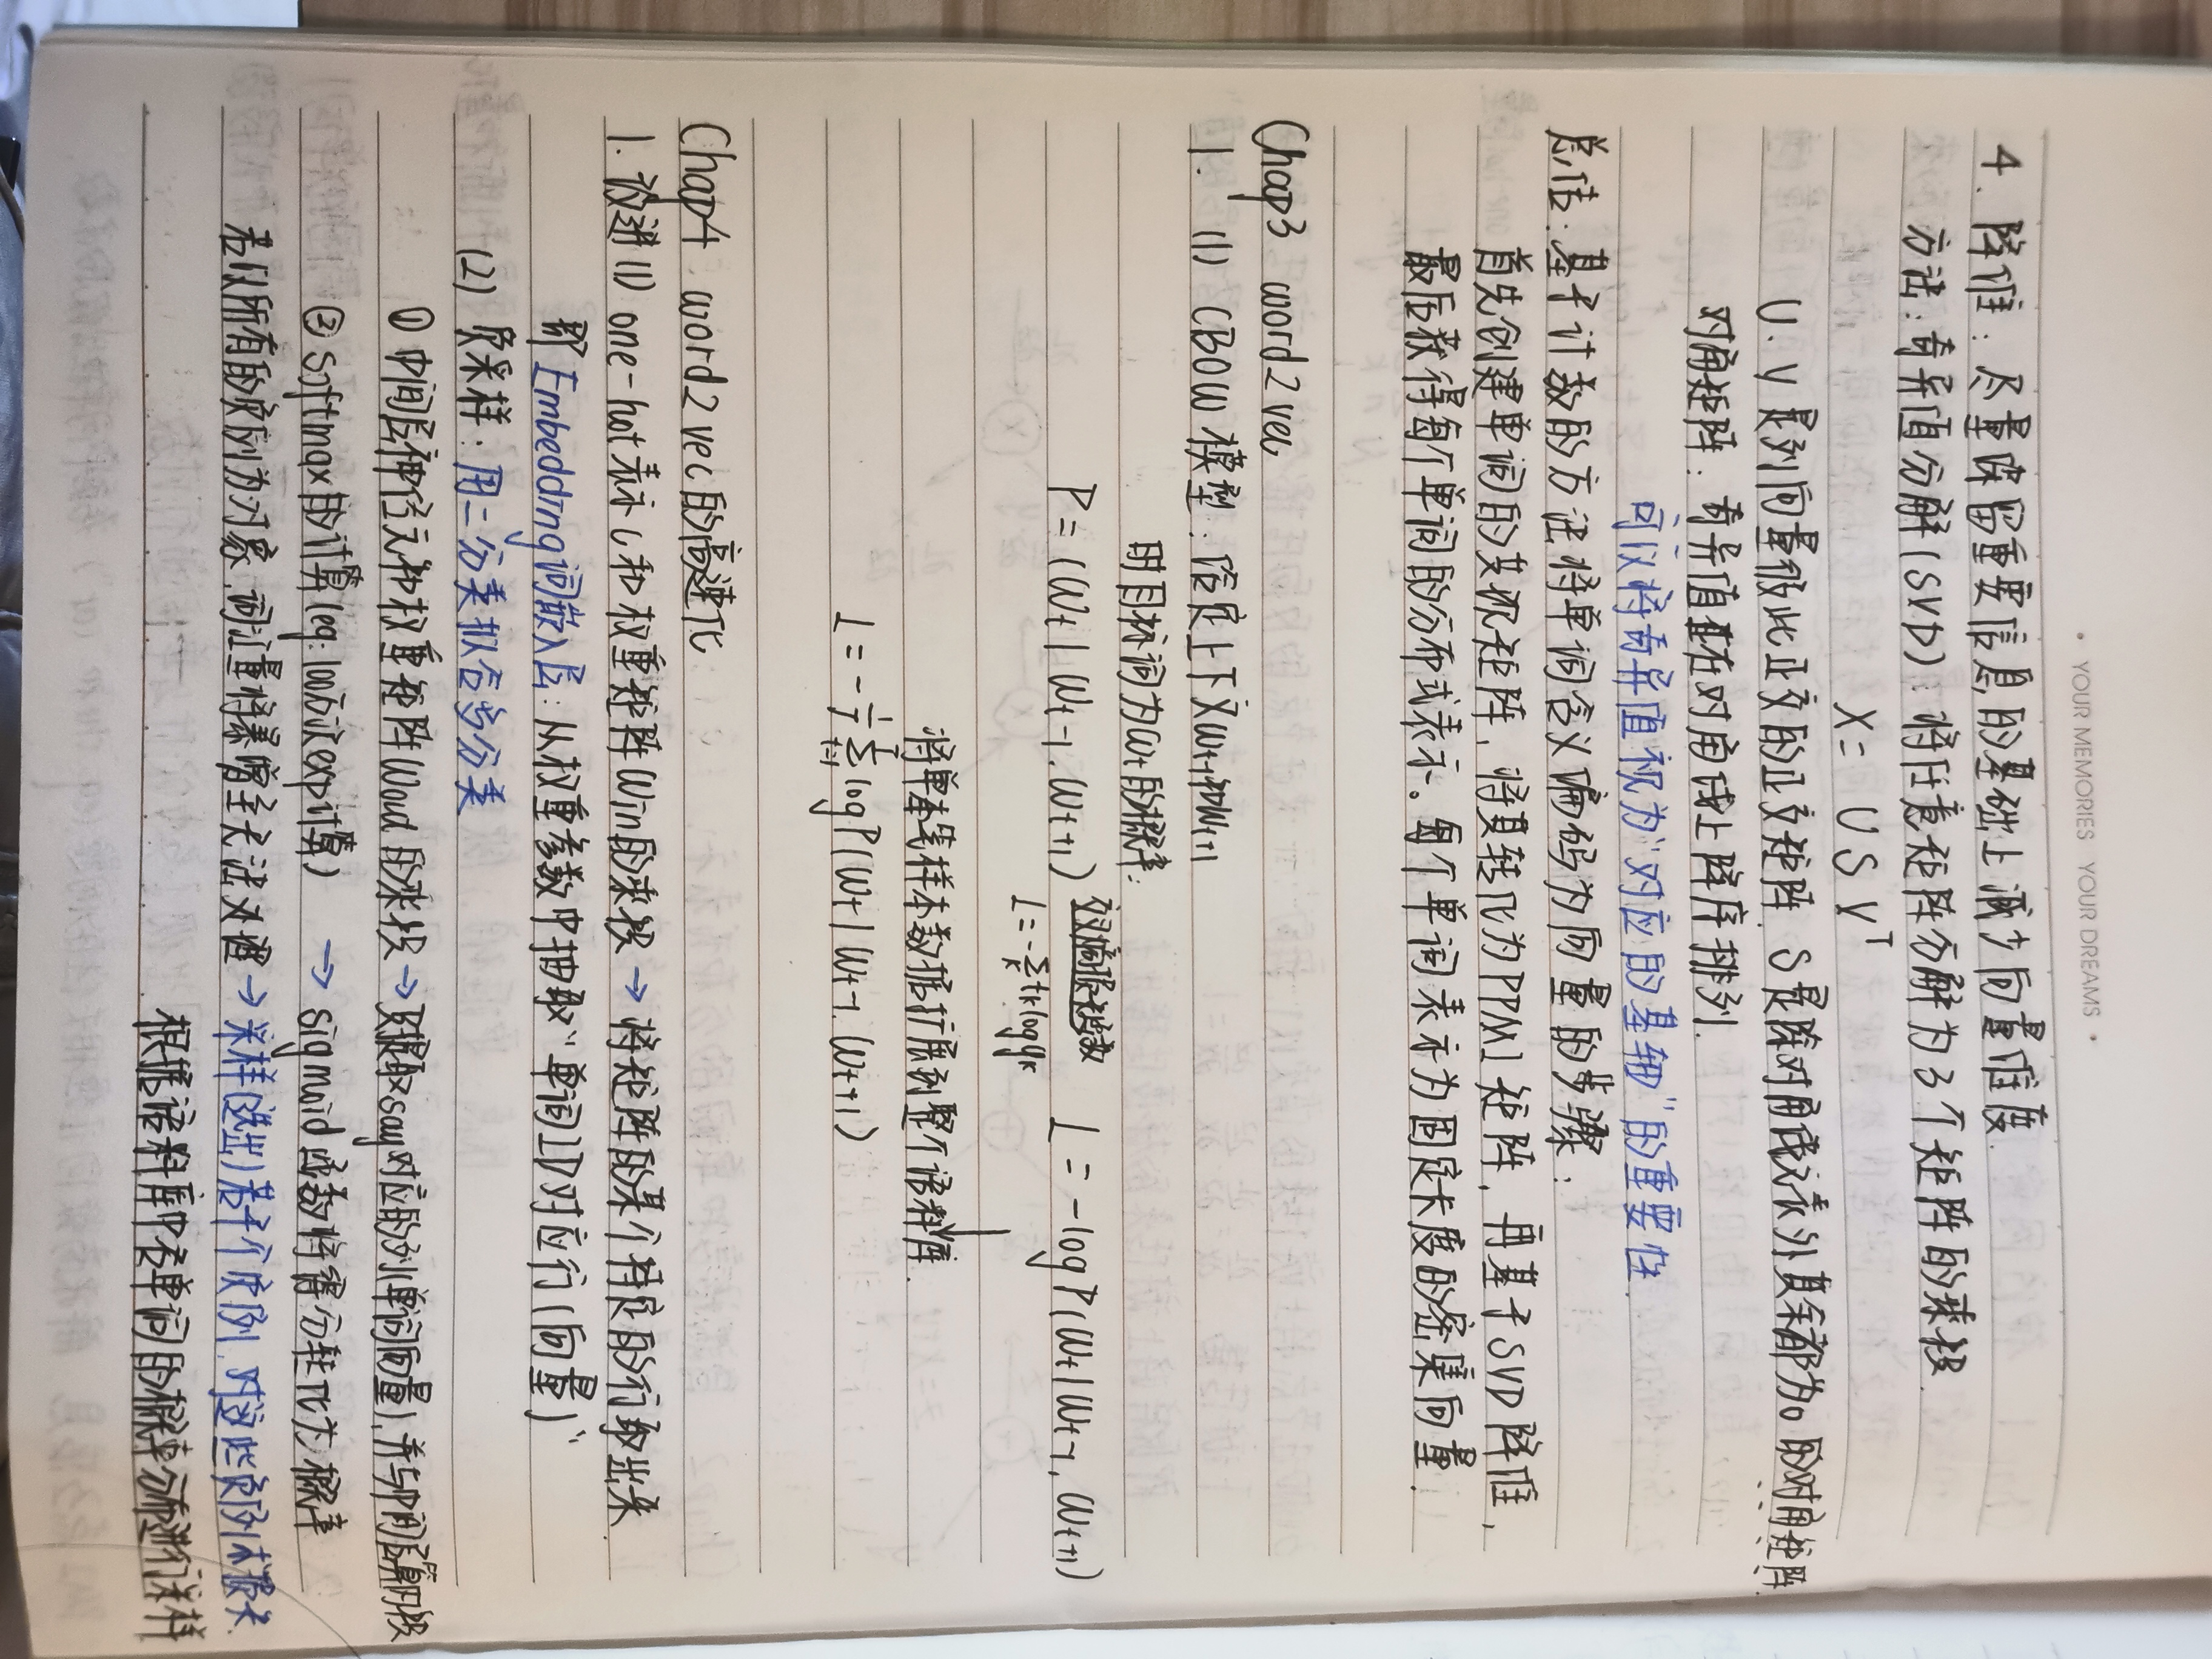 • YOUR MEMORIES YOUR DREAMS •
4. 降维：尽量保留重要信息的基础上减少向量维度.
方法：奇异值分解(SVD)：将任意矩阵分解为3个矩阵的乘积.
X = U S V^T
U. V 是列向量彼此正交的正交矩阵. S是除对角线元素外其余都为0的对角矩阵
对角矩阵：奇异值在对角线上降序排列.
可以将奇异值视为"对应的基轴"的重要性.
总结：基于计数的方法将单词含义编码为向量的步骤：
首先创建单词的共现矩阵，将其转化为PPMI矩阵，再基于SVD降维，
最后获得每个单词的分布式表示。每个单词表示为固定长度的密集向量.
Chap3 word2vec
1. (1) CBOW 模型：给定上下文Wt-1和Wt+1
时目标词为Wt的概率：
P = (Wt | Wt-1, Wt+1) 交叉熵函数 L = -log P(Wt | Wt-1, Wt+1)
L = -Σ tk log yk
k
将单笔样本数据扩展到整个语料库.
L = - 1/T Σ log P(Wt | Wt-1, Wt+1)
Chap4 word2vec的高速化
1. 改进 (1) one-hot 表示(和权重矩阵Win的乘积 → 将矩阵的某个特定的行取出来.
即Embedding词嵌入层：从权重参数中抽取"单词ID对应行(向量)"
(2) 负采样：用二分类拟合多分类
① 中间层神经元和权重矩阵Wout的乘积 → 只提取say对应的列(单词向量),并与中间层算内积
② Softmax的计算(eg: 100万次exp计算) → sigmoid函数将得分转化为概率
若以所有的负例为对象.词汇量将暴增至无法处理 → 采样(选出)若干个负例.对这些负例求损失.
根据语料库中各单词的概率分布进行采样